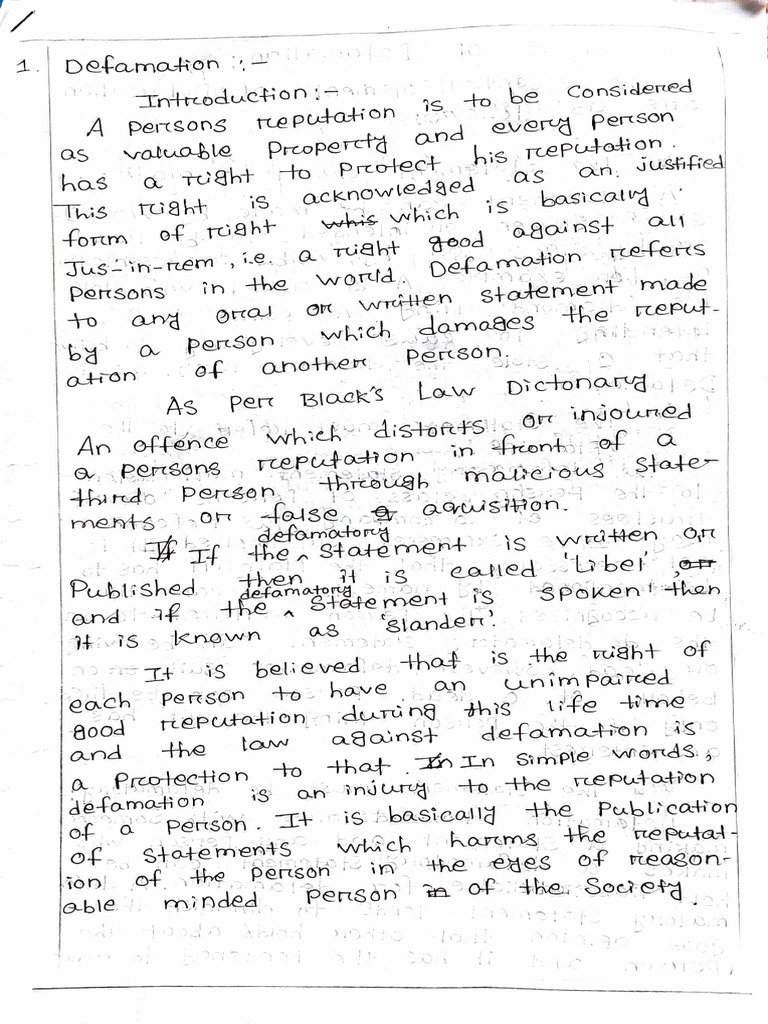 1. Defamation :-
Introduction :-
A persons reputation is to be considered
as valuable Property and every person
has a right to protect his reputation.
This right is acknowledged as an justified
form of right whis which is basically
Jus-in-rem, i.e. a right good against all
persons in the world. Defamation refers
to any oral or written statement made
by a person which damages the reput-
ation of another person.
As per Black's Law Dictonary
An offence which distorts or injoured
a persons reputation in front of a
third person through malicious state-
ments or false aquisition.
If If the defamatory statement is written or
Published then it is called 'Libel', or
and if the defamatory statement is spoken then
it is known as 'slander'.
It is believed that is the right of
each person to have an unimpaired
good reputation during this life time
and the law against defamation is
a protection to that. In In simple words,
defamation is an injury to the reputation
of a person. It is basically the Publication
of statements which harms the reputat-
ion of the person in the eyes of reason-
able minded person in of the Society.